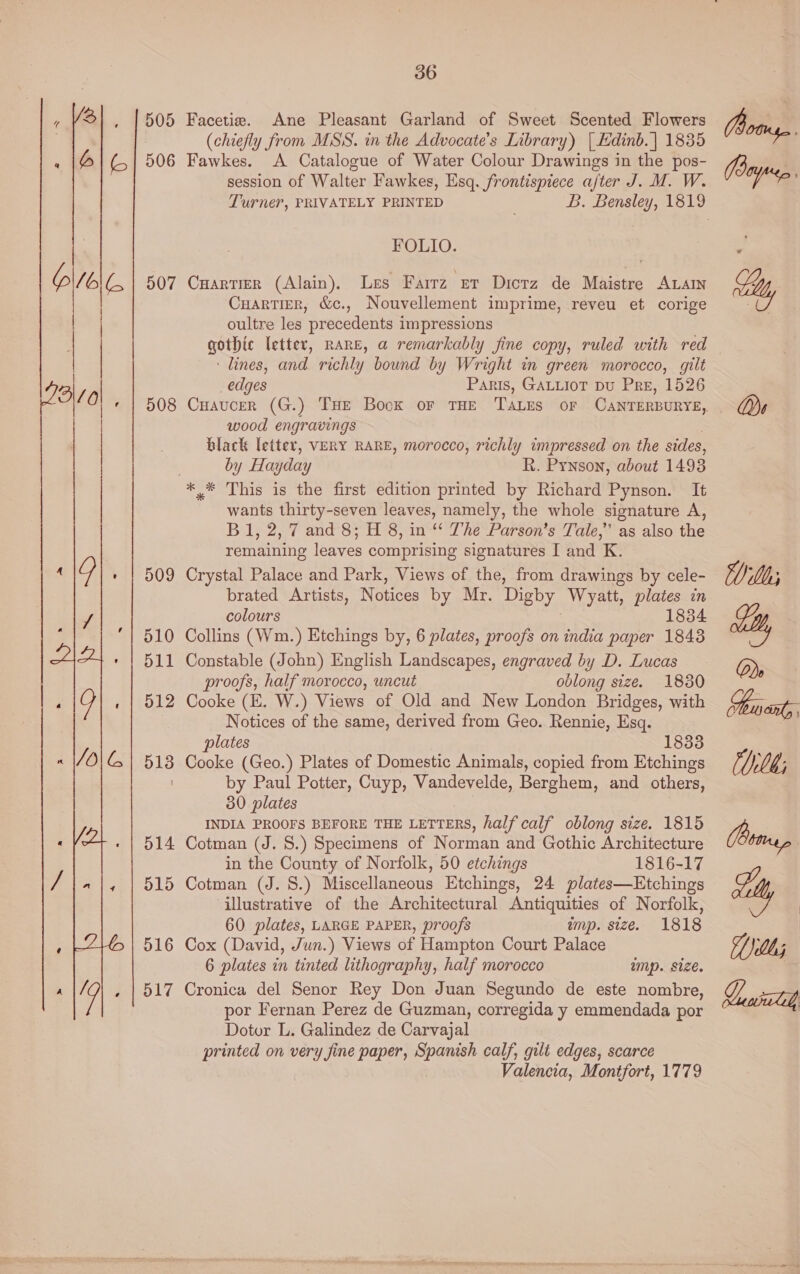 36
" 13 , 505 Facetiæ. Ane Pleasant Garland of Sweet Scented Flowers
(chiefly from MSS. in the Advocate's Library) [Edinb.] 1835
" 6 6 506 Fawkes. A Catalogue of Water Colour Drawings in the pos-
session of Walter Fawkes, Esq. frontispiece after J. M. W.
Turner, PRIVATELY PRINTED B. Bensley, 1819
FOLIO.
6 16 6 507 CHARTIER (Alain). LES FAITZ ET DICTZ de Maistre ALAIN Lilly
CHARTIER, &c., Nouvellement imprime, reveu et corige
oultre les precedents impressions
gothic letter, RARE, a remarkably fine copy, ruled with red
lines, and richly bound by Wright in green morocco, gilt
edges PARIS, GALLIOT DU PRE, 1526
23 10 , 508 CHAUCER (G.) THE BOCK OF THE TALES OF CANTERBURYE, Do
wood engravings
black letter, VERY RARE, morocco, richly impressed on the sides,
by Hayday R. PYNSON, about 1493
*** This is the first edition printed by Richard Pynson. It
wants thirty-seven leaves, namely, the whole signature A,
B 1, 2, 7 and 8; H 8, in “The Parson's Tale,” as also the
remaining leaves comprising signatures I and K.
" 9 , 509 Crystal Palace and Park, Views of the, from drawings by cele- Willis
brated Artists, Notices by Mr. Digby Wyatt, plates in
colours 1834
" 1 , 510 Collins (Wm.) Etchings by, 6 plates, proofs on india paper 1843 Lilly
22 , 511 Constable (John) English Landscapes, engraved by D. Lucas Do
proofs, half morocco, uncut oblong size. 1830
" 9 , 512 Cooke (E. W.) Views of Old and New London Bridges, with
Notices of the same, derived from Geo. Rennie, Esq.
plates 1833
" 10 6 513 Cooke (Geo.) Plates of Domestic Animals, copied from Etchings Willis
by Paul Potter, Cuyp, Vandevelde, Berghem, and others,
30 plates
INDIA PROOFS BEFORE THE LETTERS, half calf oblong size. 1815
" 12 . 514 Cotman (J. S.) Specimens of Norman and Gothic Architecture
in the County of Norfolk, 50 etchings 1816-17
1 " , 515 Cotman (J. S.) Miscellaneous Etchings, 24 plates—Etchings Lilly
illustrative of the Architectural Antiquities of Norfolk,
60 plates, LARGE PAPER, proofs imp. size. 1818
, 2 6 516 Cox (David, Jun.) Views of Hampton Court Palace Willis
6 plates in tinted lithography, half morocco imp. size.
" 19 , 517 Cronica del Senor Rey Don Juan Segundo de este nombre, Quaritch
por Fernan Perez de Guzman, corregida y emmendada por
Dotor L. Galindez de Carvajal
printed on very fine paper, Spanish calf, gilt edges, scarce
Valencia, Montfort, 1779